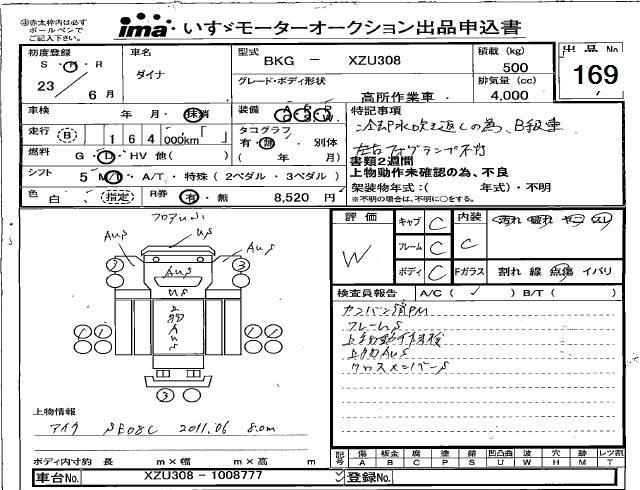 ④赤太枠内は必ず
ボールペンで
ご記入下さい。
ima いすゞモーターオークション出品申込書
初度登録
S・H・R
23 6月
車名
ダイナ
型式
BKG － XZU308
グレード・ボディ形状
高所作業車
積載 (kg)
500
排気量 (cc)
4,000
出品 No
169
車検 年 月・抹消
装備 A P P
C S W
走行 B 164000km「 」
タコグラフ
有・無・別体
( 年 月)
燃料 G・D・HV 他( )
シフト 5 M/T・A/T・特殊 (2ペダル・3ペダル)
色 白 ・指定 R券 有・無 8,520 円
特記事項
冷却水吹き返しの為、B級車
左右フォグランプ不灯
書類2週間
上物動作未確認の為、不良
架装物年式:( 年式)・不明
※不明の場合は、不明に○をする。
フロアUS
US
AUS AUS
AUS
US
2 3
上物AUS
3
評価
W
キャブ C
フレーム C
ボディ C
内装 C
汚れ 破れ ヤニ スレ
Fガラス 割れ 線 点傷 イバリ
検査員報告 A/C ( ✓ ) B/T ( )
カンバン消PM
フレームS
上物AUS
クロスメンバーS
上物情報
アイチ SE08C 2011.06 8.0m
ボディ内寸約 長 m×幅 m×高 m
記号 傷 板金 腐 塗 錆 凹凸曲 波 穴 跡 レツ割
A B C P S U W H M T
車台No. XZU308－1008777
登録No.